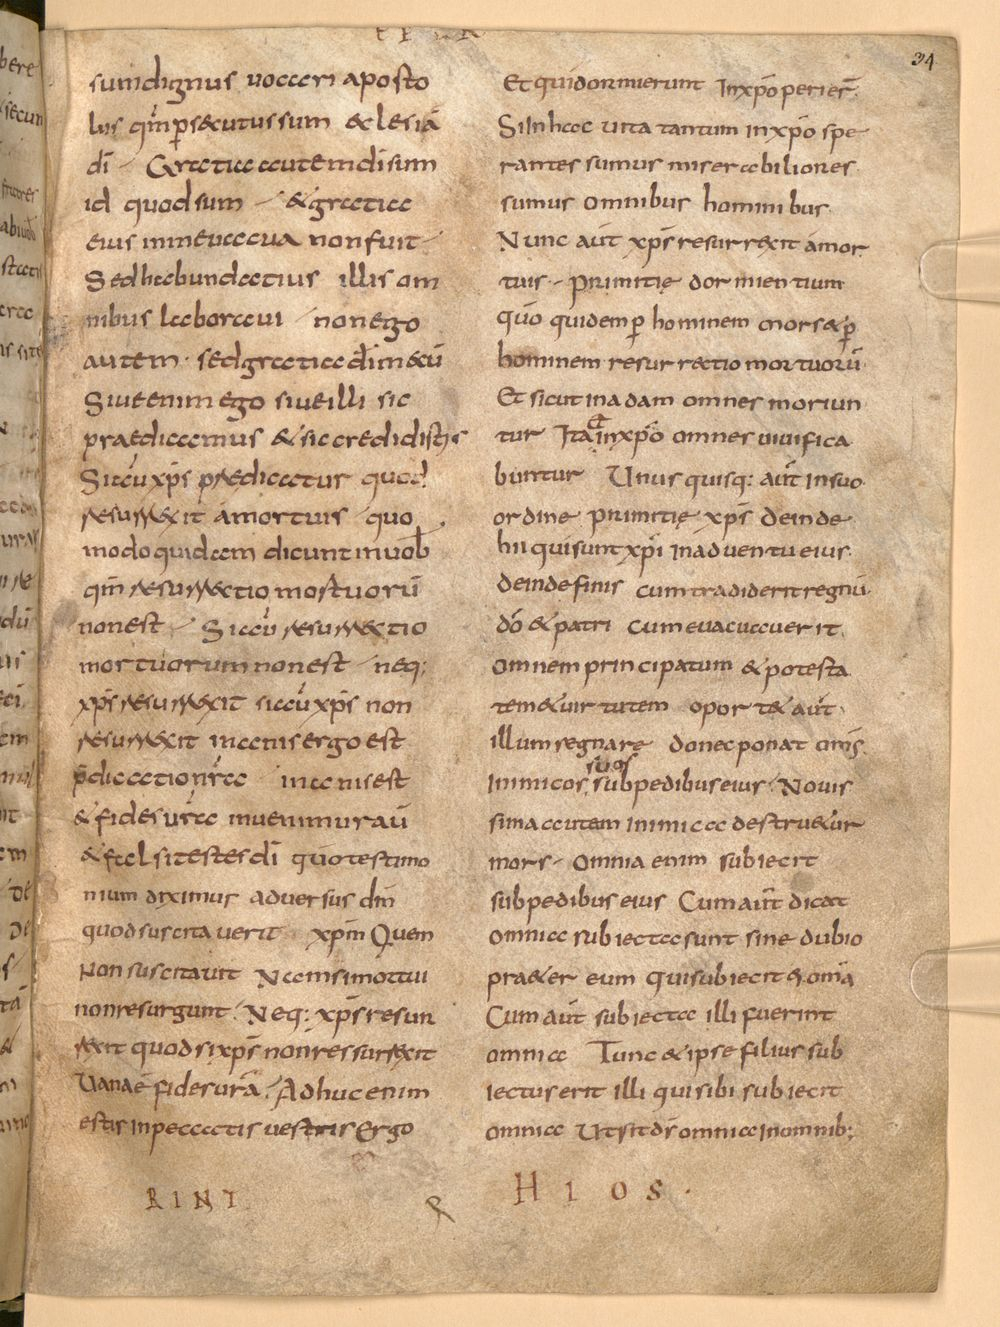 34
sum dignus uocari aposto
lus qm̅ persecutus sum eclesiā
dī Gratia autem dī sum
id quod sum & gratia
eius in me uacua non fuit
Sed habundactius illis om
nibus laboraui non ego
autem · sed gratia dī mecū
Siue enim ego siue illi sic
praedicamus & sic credidistis
Si aū xp̅s praedicatur quod
resurrexit amortuis quo
modo quidam dicunt in uob̅
qm̅ resurrectio mortuorū
non est Si aū resurrectio
mortuorum non est neq;
xp̅s resurrexit si aū xp̅s non
resurrexit inanis ergo est
p̅dicatio nr̅a inanis est
& fides ur̅a inuenimur aū
& fal si testes dī qūo testimo
nium diximus aduersus dm̅
quod suscitauerit xp̅m Quem
Non suscitauit Nam si mortui
non resurgunt Neq; xp̅s resur
rexit quod si xp̅s non ressurrexit
Uana ē fides ur̅a · Adhuc enim
estis in peccatis uestris Ergo
RINT
Et qui dormierunt In xp̅o perier̅.
Si In hac uita tantum in xp̅o spe
rantes sumus miserabiliores
sumus omnibus hominibus.
Nunc aut̅ xp̅s resurrexit amor
tuis · Primitię dormientium
qūo quidem p̲ hominem mors & p̲
hominem resurrectio mortuorū
Et sicut in adam omnes moriun
tur Ita & in xp̅o omnes uiuifica
buntur Unus quisq: aut̅ in suo
ordine primitię xp̅s deinde
hii qui sunt xp̅i in aduentu eius.
deinde finis cum tradiderit regnū
dō & patri cum euacuauerit
omnem principatum & potesta
tem & uirtutem oport& aut̅
illum regnare donec ponat om̅s
inimicos suos sub pedibus eius · Nouis
sima autem inimica destru&ur
mors · Omnia enim subiecit
sub pedibus eius Cum aut̅ dicat
omnia subiecta sunt sine dubio
pra&er eum qui subiecit ei om̅a
Cum aut̅ subiecta illi fuerint
omnia Tunc & ipse filius sub
iectus erit illi qui sibi subiecit
omnia Ut sit ds̅ omnia in omnib;
HIOS ·